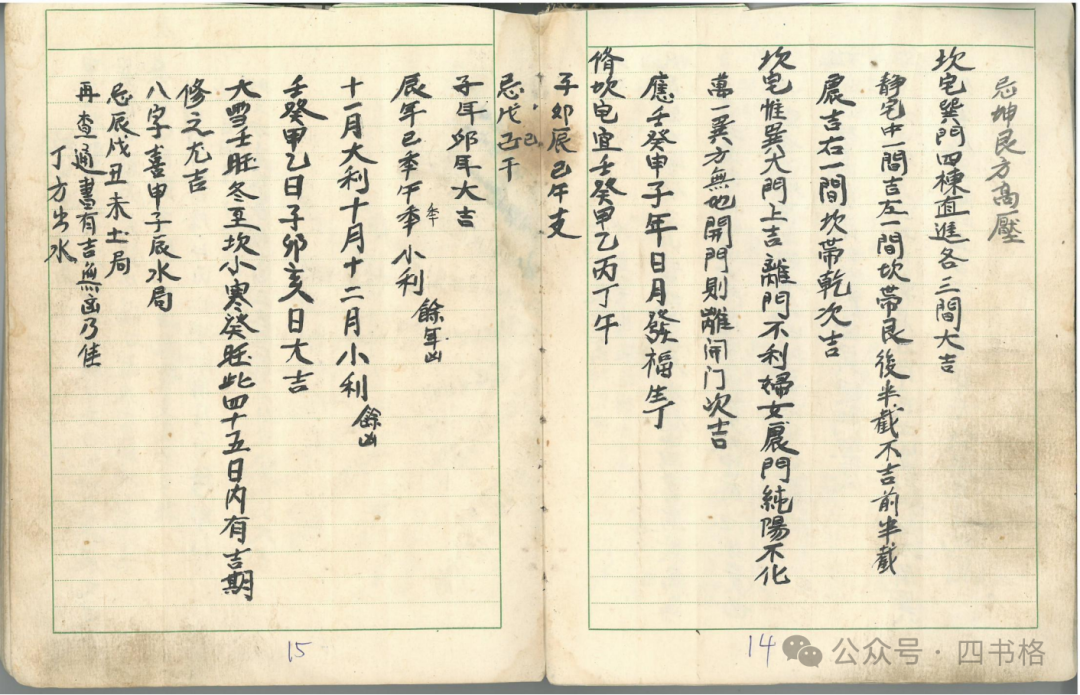 忌坤艮方高壓
坎宅巽門四棟直進各三間大吉
靜宅中一間吉左一間坎帶艮後半截不吉前半截
震吉右一間坎帶乾次吉
坎宅惟巽大門上吉離門不利婦女震門純陽不化
萬一巽方無地開門則離開门次吉
應壬癸甲子年日月發福生丁
脩坎宅宜壬癸甲乙丙丁午
子卯辰巳午支
忌戊己干
子年卯年大吉
辰年巳年午年小利餘年凶
十一月大利十月十二月小利餘凶
壬癸甲乙日子卯亥日大吉
大雪壬旺冬至坎小寒癸旺此四十五日内有吉期
修之尤吉
八字喜申子辰水局
忌辰戌丑未土局
再查通書有吉無凶乃佳
丁方出水
15
14
公众号·四书格